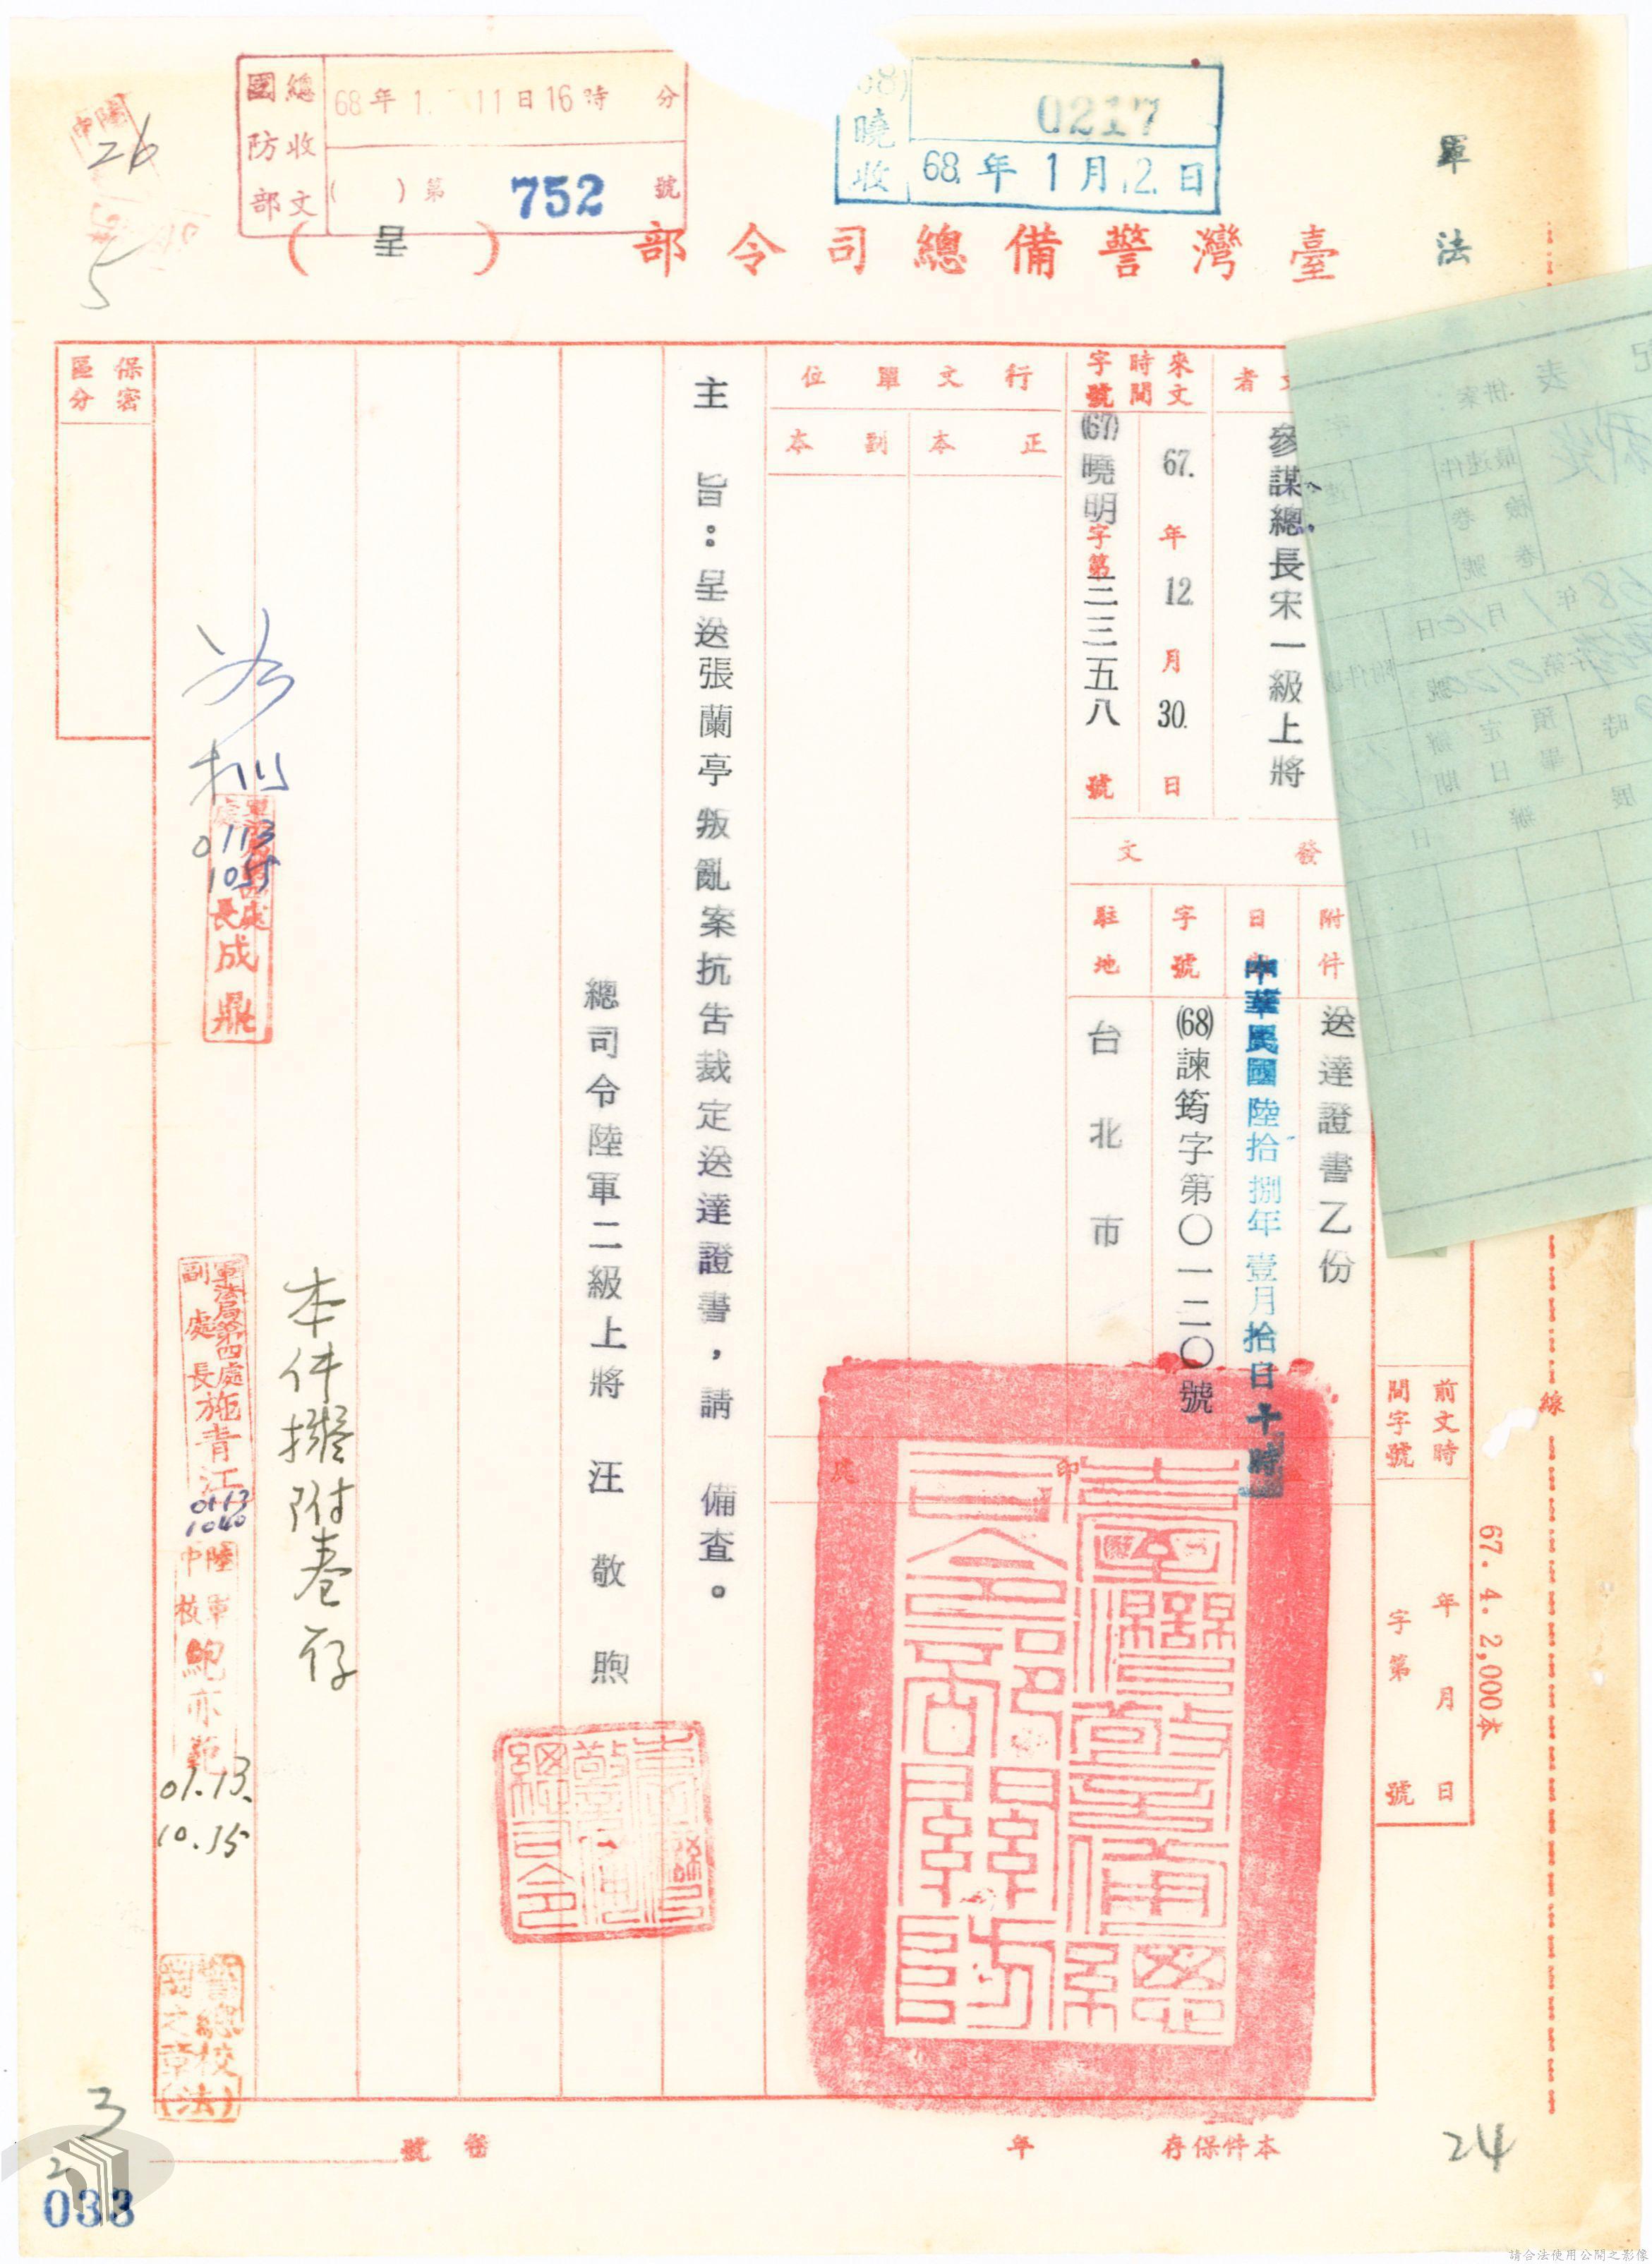 軍法
國防部
總收文
68年1. 11日16時 分
( )第752號
曉收
0217
68.年1月12日
臺灣警備總司令部(呈)
26
5
參謀總長宋一級上將
來文時間字號
67.年12月30.日
(67)曉明字第三三五八號
行文單位
正本
副本
發文
附件
送達證書乙份
中華民國陸拾捌年壹月拾日十時
字號
(68)諫筠字第〇一二〇號
駐地
台北市
主旨:呈送張蘭亭叛亂案抗告裁定送達證書,請 備查。
總司令陸軍二級上將 汪敬煦
本件擬附卷存
保密區分
0113
1055
處長成鼎
軍法局第四處
副處長施青江
0113
1040
陸軍中校鮑亦範
01.13.
10.35
前文時間字號
年月日
字第 號
67.4.2,000本
線
臺灣警備總司令部關防
臺灣警備總司令
印
本件保存 年
卷號
24
3
2
033
請合法使用公開之影像